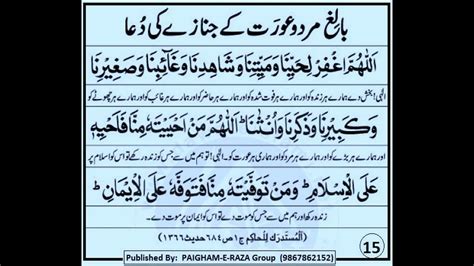 بالغ مرد و عورت کے جنازے کی دُعا
اَللّٰهُمَّ اغْفِرْ لِحَيِّنَا وَمَيِّتِنَا وَشَاهِدِنَا وَغَآئِبِنَا وَصَغِيْرِنَا
الٰہی! بخش دے ہمارے ہر زندہ کو اور ہمارے ہر فوت شدہ کو اور ہمارے ہر حاضر کو اور ہمارے ہر غائب کو اور ہمارے ہر چھوٹے کو
وَكَبِيْرِنَا وَذَكَرِنَا وَاُنْثٰنَا ؕ اَللّٰهُمَّ مَنْ اَحْيَيْتَهٗ مِنَّا فَاَحْيِهٖ
اور ہمارے ہر بڑے کو اور ہمارے ہر مرد کو اور ہماری ہر عورت کو۔ الٰہی! تو ہم میں سے جس کو زندہ رکھے تو اس کو اسلام پر
عَلَى الْاِسْلَامِ ؕ وَمَنْ تَوَفَّيْتَهٗ مِنَّا فَتَوَفَّهٗ عَلَى الْاِيْمَانِ ؕ
زندہ رکھ اور ہم میں سے جس کو موت دے تو اس کو ایمان پر موت دے۔
(اَلْمُسْتَدْرَك لِلْحَاكِم ج۱ ص۶۸۴ حدیث۱۳۶۶)
15
Published By: PAIGHAM-E-RAZA Group (9867862152)